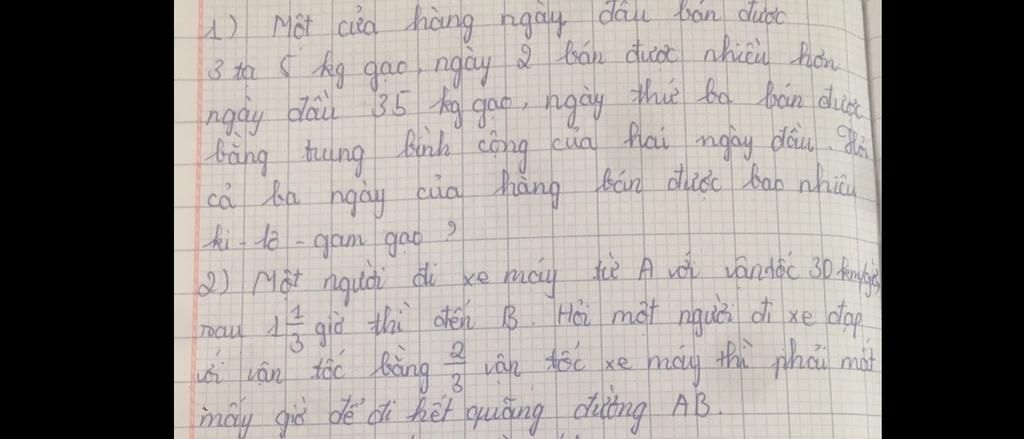 1) Một cửa hàng ngày đầu bán được
3 tạ 5 kg gạo, ngày 2 bán được nhiều hơn
ngày đầu 35 kg gạo, ngày thứ ba bán được
bằng trung bình cộng của hai ngày đầu. Hỏi
cả ba ngày cửa hàng bán được bao nhiêu
ki-lô-gam gạo ?
2) Một người đi xe máy từ A với vận tốc 30 km/giờ
sau 1 1/3 giờ thì đến B. Hỏi một người đi xe đạp
với vận tốc bằng 2/3 vận tốc xe máy thì phải mất
mấy giờ để đi hết quãng đường AB.